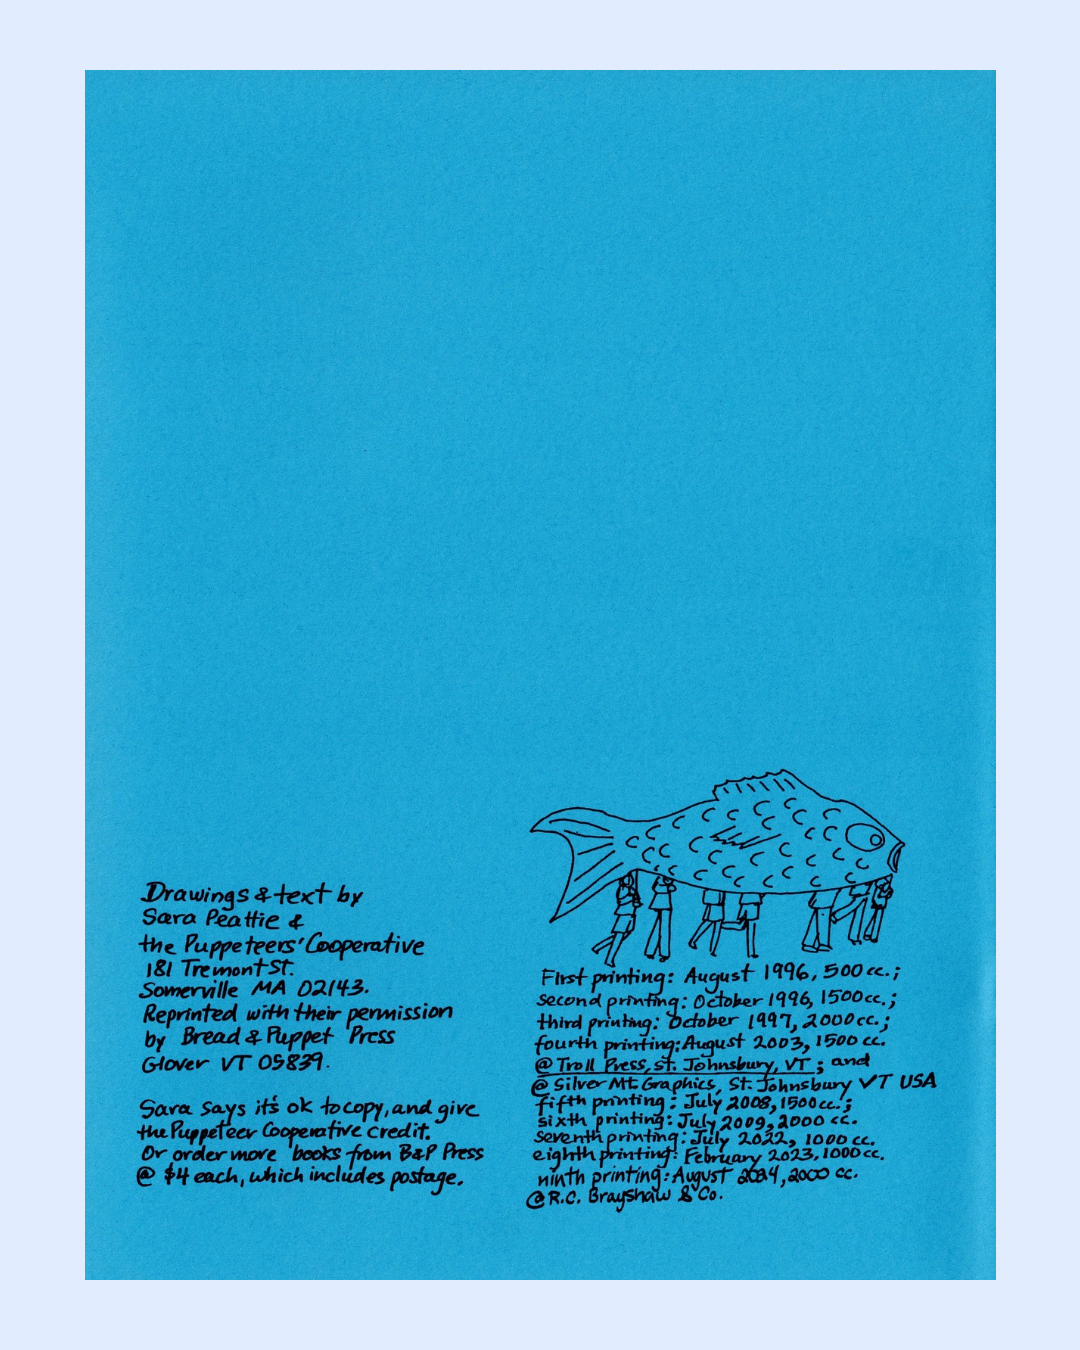 Drawings & text by
Sara Peattie &
the Puppeteers' Cooperative
181 Tremont St.
Somerville MA 02143.
Reprinted with their permission
by Bread & Puppet Press
Glover VT 05839.
Sara says it's ok to copy, and give
the Puppeteer Cooperative credit.
Or order more books from B&P Press
@ $4 each, which includes postage.
First printing: August 1996, 500 cc.;
second printing: October 1996, 1500 cc.;
third printing: October 1997, 2000 cc.;
fourth printing: August 2003, 1500 cc.
@ Troll Press, St. Johnsbury, VT; and
@ Silver Mt. Graphics, St. Johnsbury VT USA
fifth printing: July 2008, 1500 cc.;
sixth printing: July 2009, 2000 cc.
seventh printing: July 2022, 1000 cc.
eighth printing: February 2023, 1000 cc.
ninth printing: August 2024, 2000 cc.
@ R.C. Brayshaw & Co.